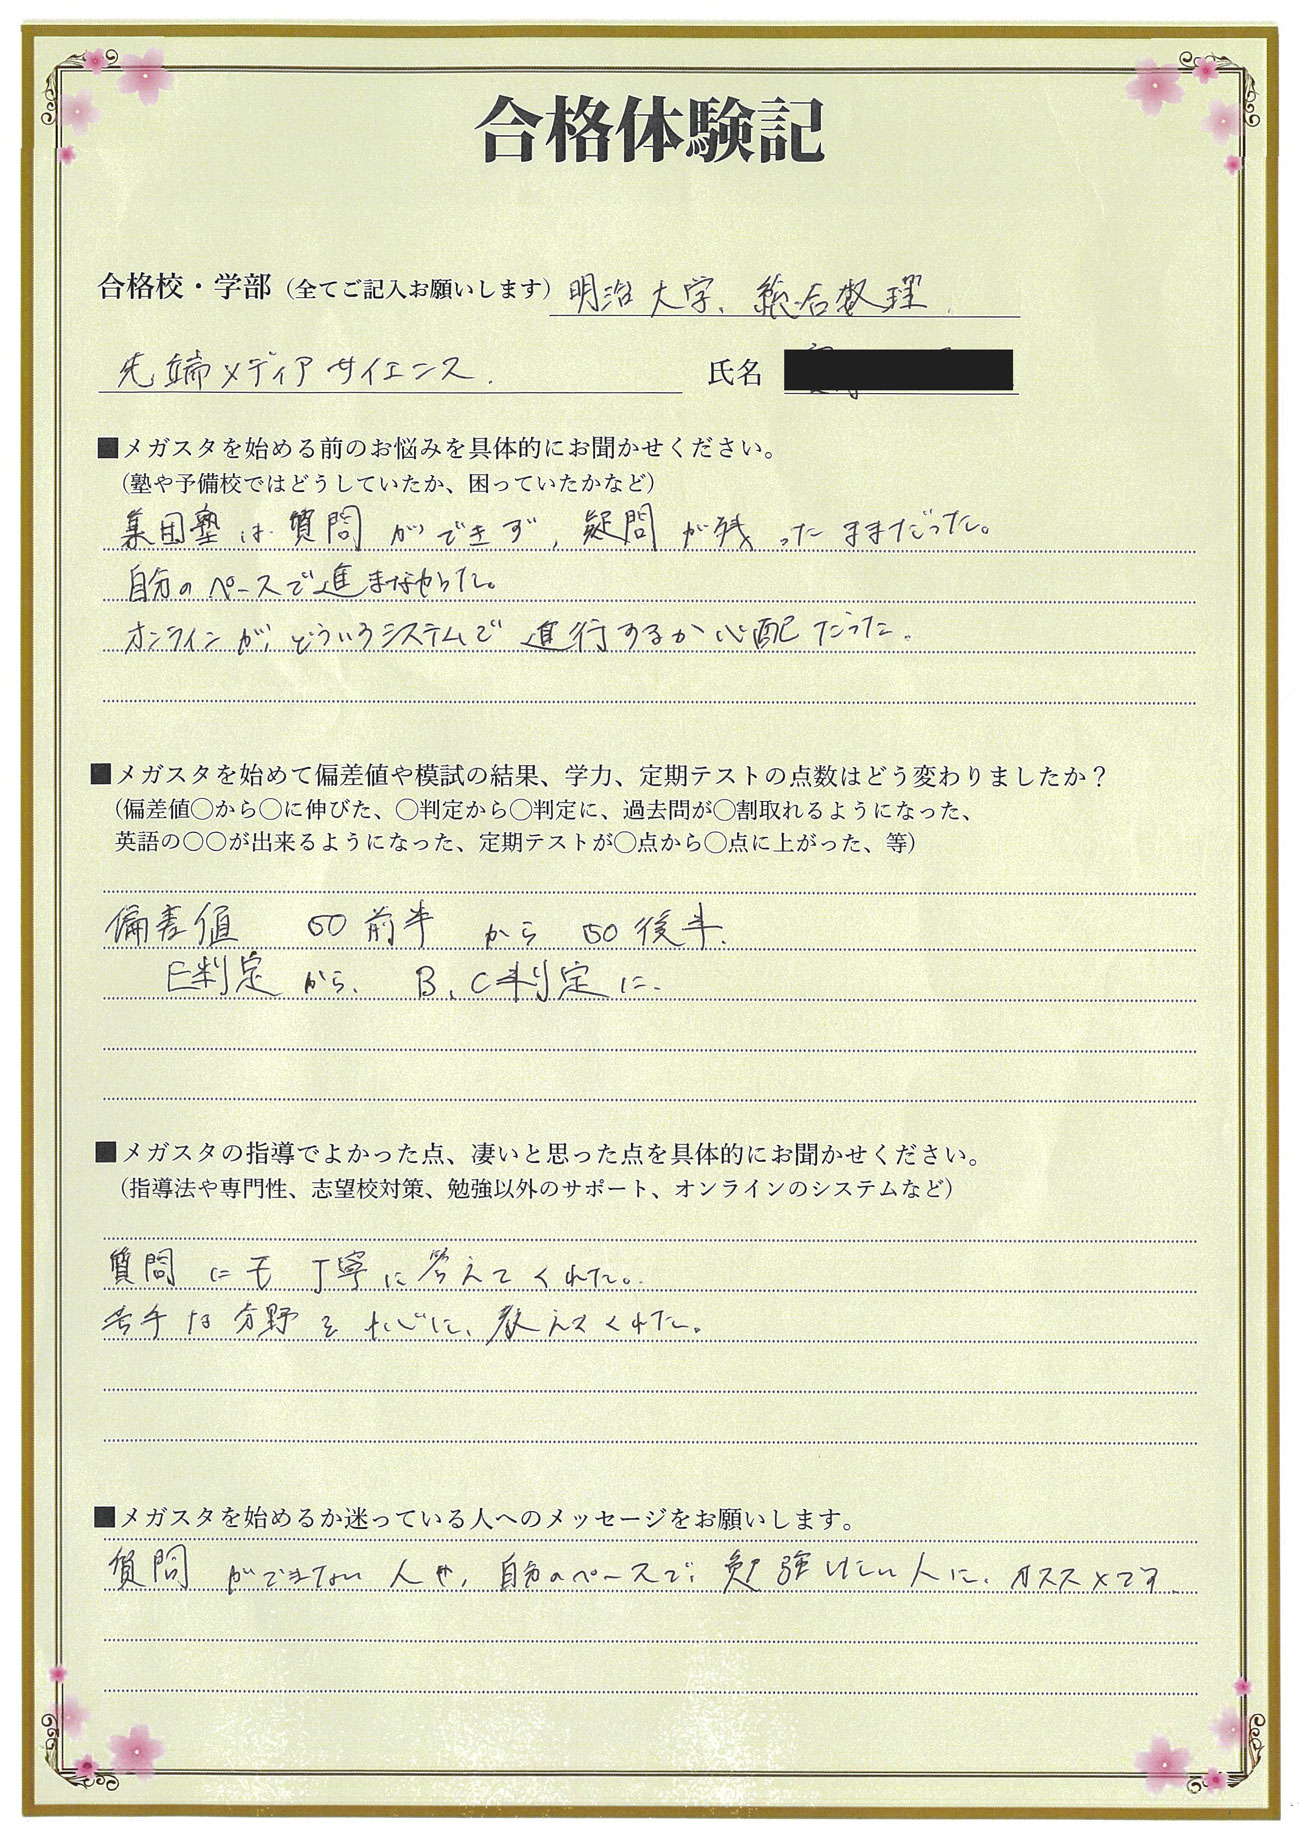 合格体験記
合格校・学部（全てご記入お願いします）明治大学、総合数理、
先端メディアサイエンス． 氏名
■メガスタを始める前のお悩みを具体的にお聞かせください。
（塾や予備校ではどうしていたか、困っていたかなど）
集団塾は質問ができず、疑問が残ったままだった。
自分のペースで進まなかった。
オンラインが、どういうシステムで進行するか心配だった。
■メガスタを始めて偏差値や模試の結果、学力、定期テストの点数はどう変わりましたか？
（偏差値〇から〇に伸びた、〇判定から〇判定に、過去問が〇割取れるようになった、
英語の〇〇が出来るようになった、定期テストが〇点から〇点に上がった、等）
偏差値 50前半 から 50後半．
E判定から、B、C判定に．
■メガスタの指導でよかった点、凄いと思った点を具体的にお聞かせください。
（指導法や専門性、志望校対策、勉強以外のサポート、オンラインのシステムなど）
質問にも丁寧に答えてくれた。
苦手な分野を中心に、教えてくれた。
■メガスタを始めるか迷っている人へのメッセージをお願いします。
質問ができない人や、自分のペースで、勉強したい人に、オススメです．